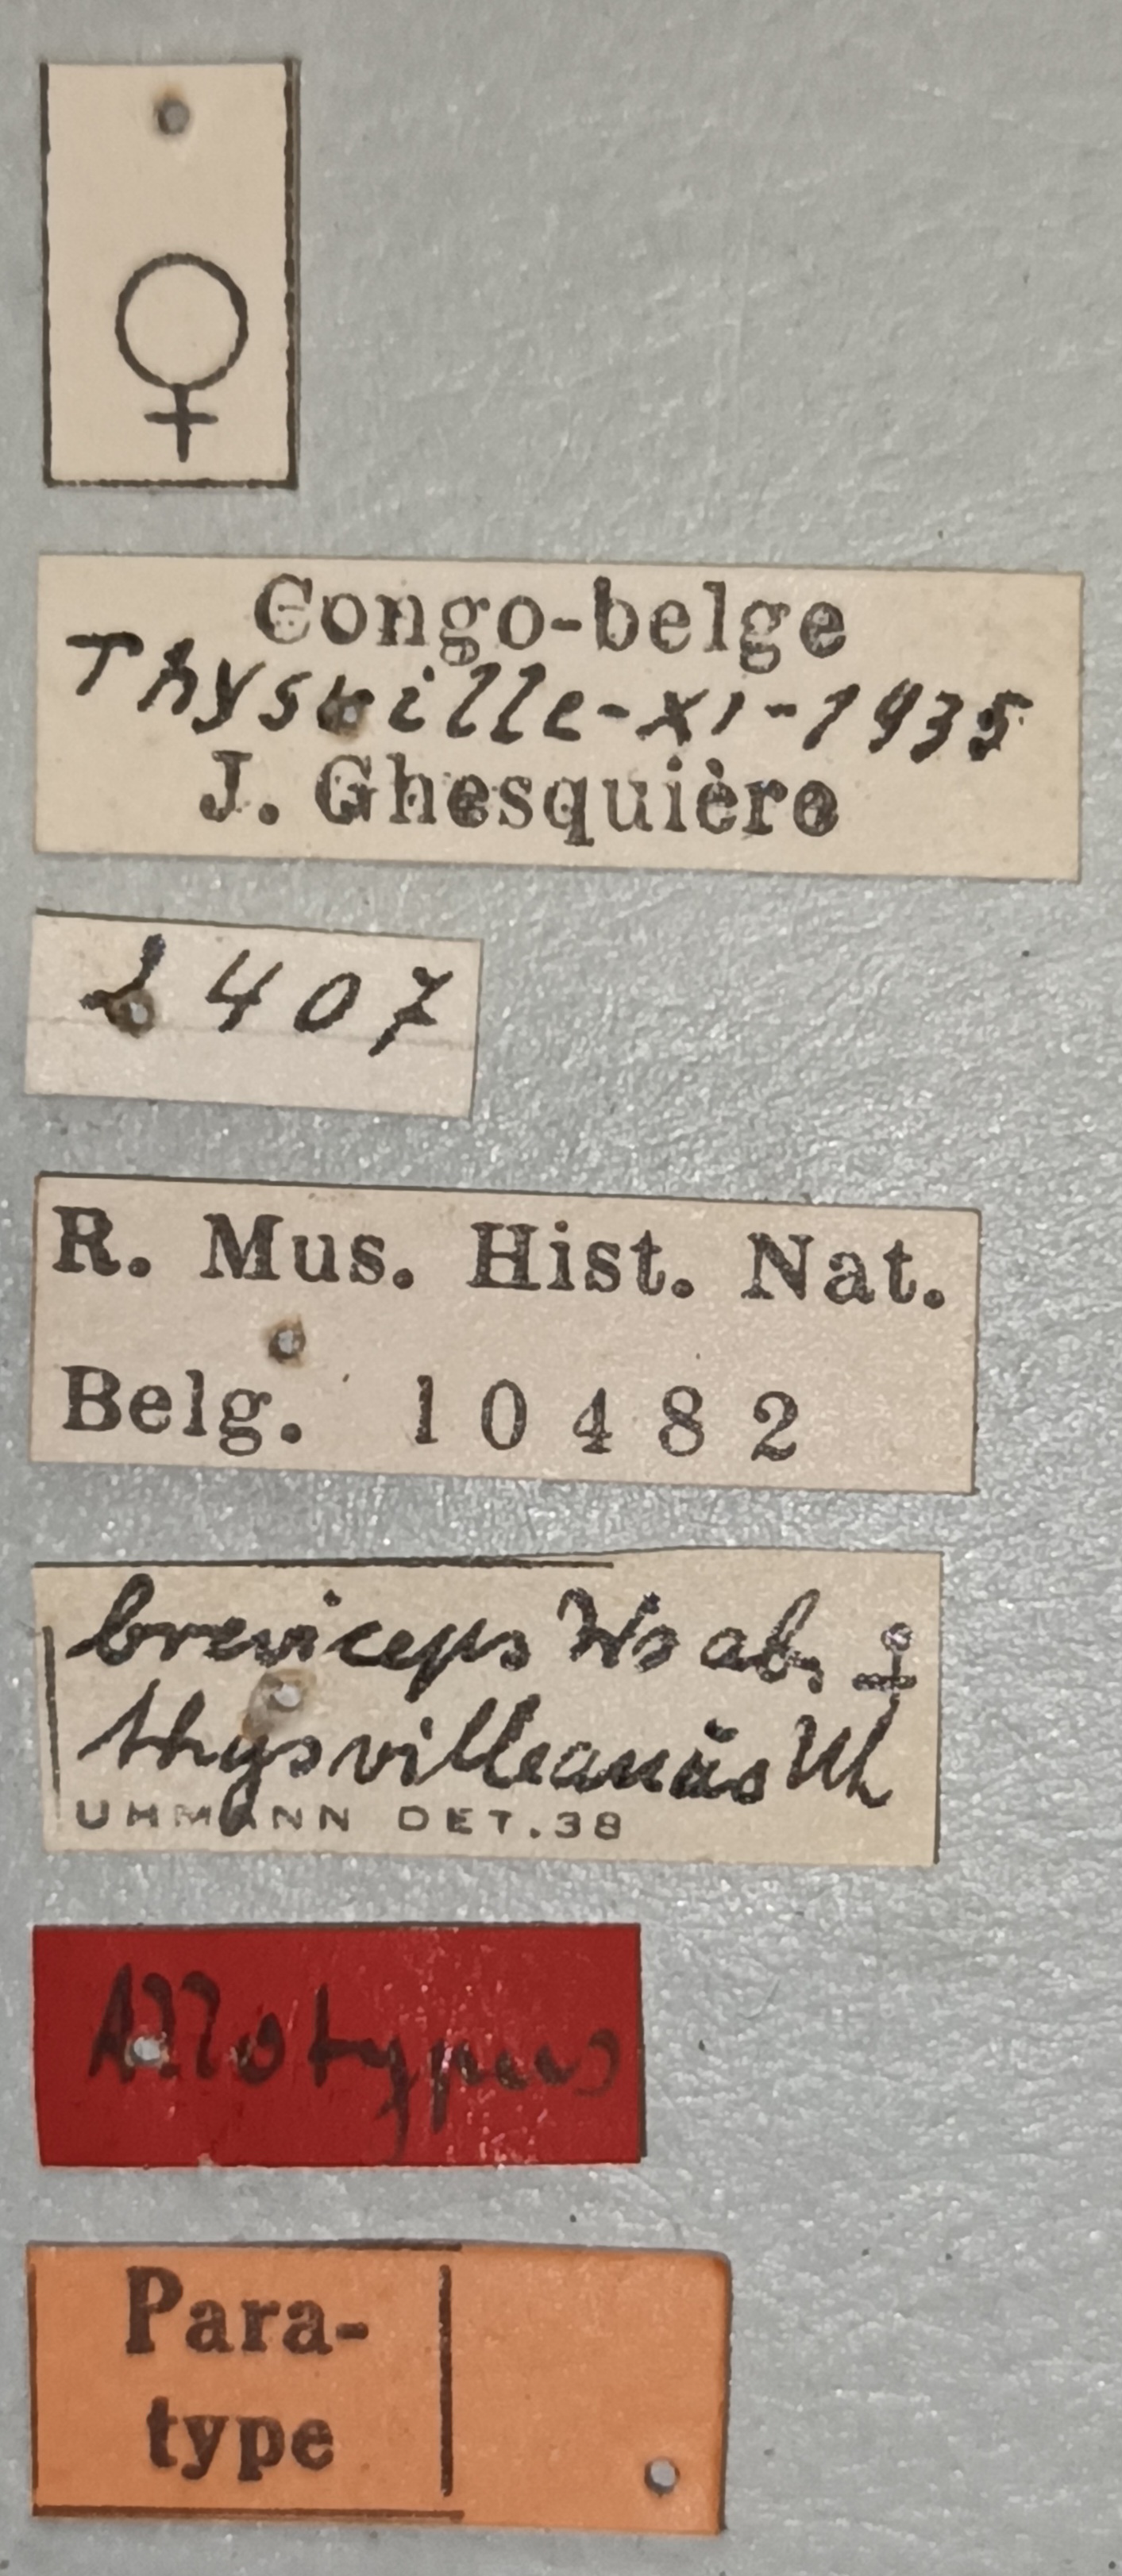 ♀
Congo-belge
Thysville-XI-1935
J. Ghesquière
2407
R. Mus. Hist. Nat.
Belg. 10482
breviceps Ws ab. ♀
thysvilleanus Uh
UHMANN DET.38
Allotypus
Para-
type